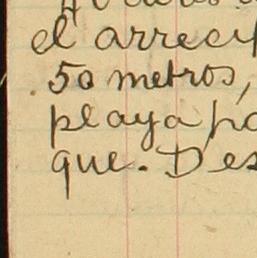 el arrecif
50 metros,
playa po
que. Des